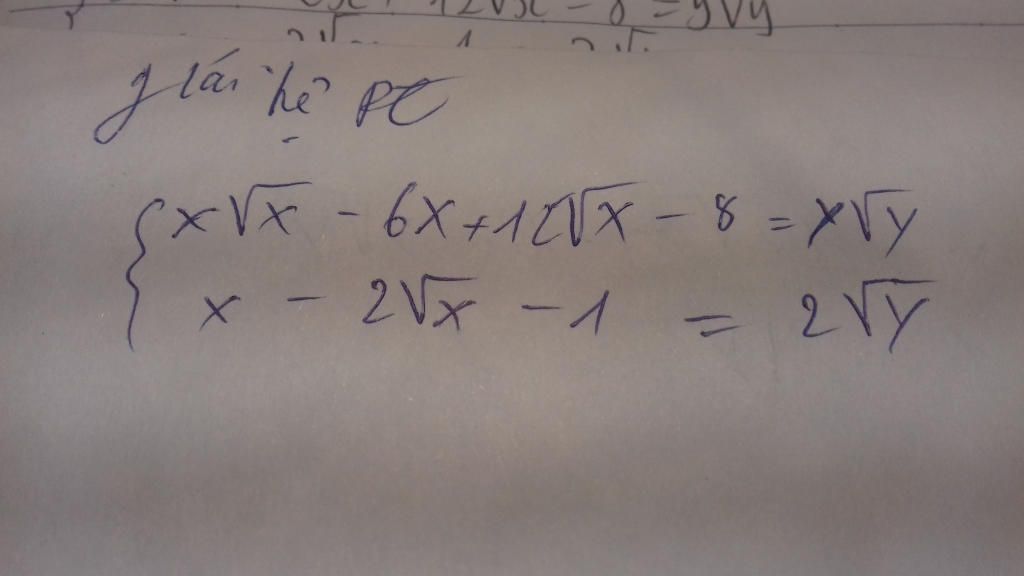 12√x - 8 = y√y
giải hệ PT
x√x - 6x + 12√x - 8 = y√y
x - 2√x - 1 = 2√y